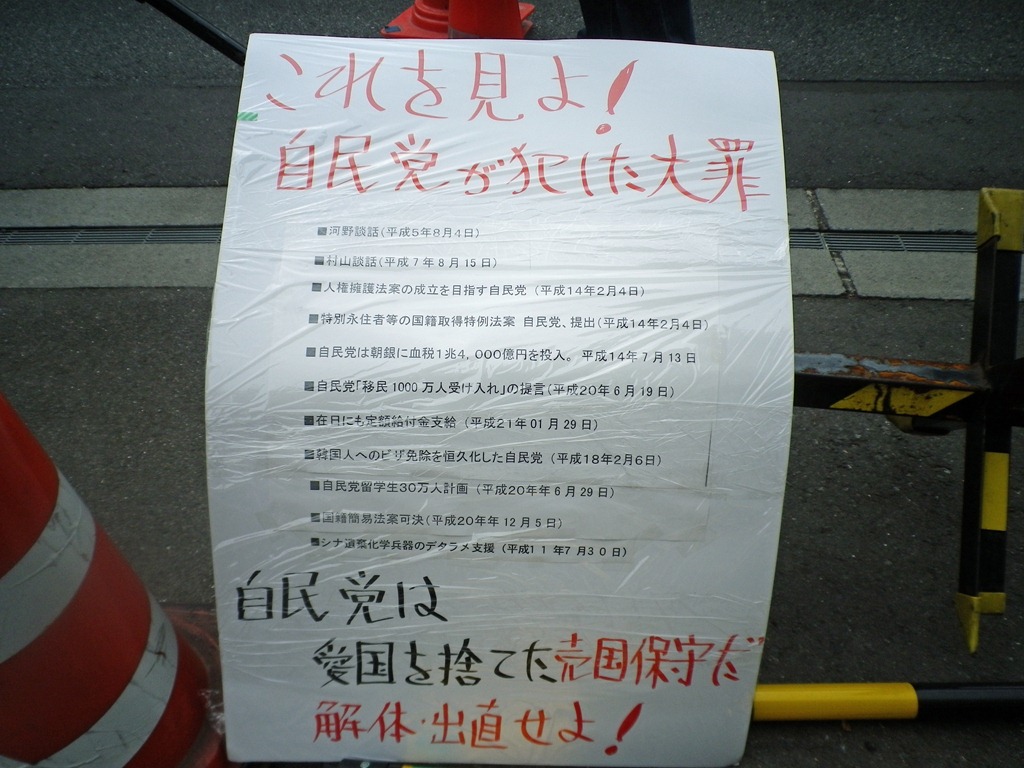 これを見よ!
自民党が犯した大罪
■河野談話(平成5年8月4日)
■村山談話(平成7年8月15日)
■人権擁護法案の成立を目指す自民党 (平成14年2月4日)
■特別永住者等の国籍取得特例法案 自民党、提出(平成14年2月4日)
■自民党は朝銀に血税1兆4,000億円を投入。平成14年7月13日
■自民党「移民1000万人受け入れ」の提言(平成20年6月19日)
■在日にも定額給付金支給 (平成21年01月29日)
■韓国人へのビザ免除を恒久化した自民党 (平成18年2月6日)
■自民党留学生30万人計画 (平成20年年6月29日)
■国籍簡易法案可決(平成20年年12月5日)
■シナ遺棄化学兵器のデタラメ支援 (平成11年7月30日)
自民党は
愛国を捨てた売国保守だ
解体・出直せよ!